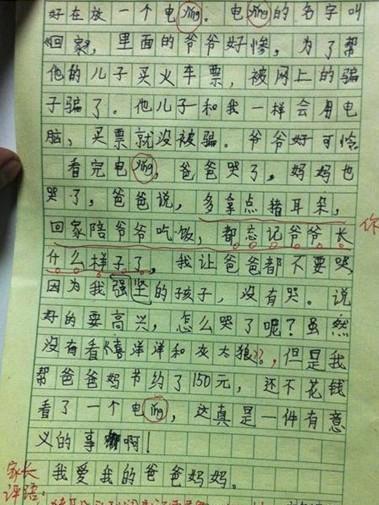 好在放一个电ying。电ying的名字叫
《回家》，里面的爷爷好惨，为了帮
他的儿子买火车票，被网上的骗
子骗了。他儿子和我一样会用电
脑，买票就没被骗。爷爷好可怜
看完电ying，爸爸哭了，妈妈也
哭了，爸爸说，多拿点猪耳朵，
回家陪爷爷吃饭，都忘记爷爷长
什么样子了，我让爸爸都不要哭
因为我强坚的孩子，没有哭。说
好的要高兴，怎么哭了呢？虽然
没有看《喜洋洋和灰太狼》，但是我
帮爸爸妈节约了150元，还不花钱
看了一个电ying，这真是一件有意
义的事啊！
我爱我的爸爸妈妈。
家长
评陪：
你